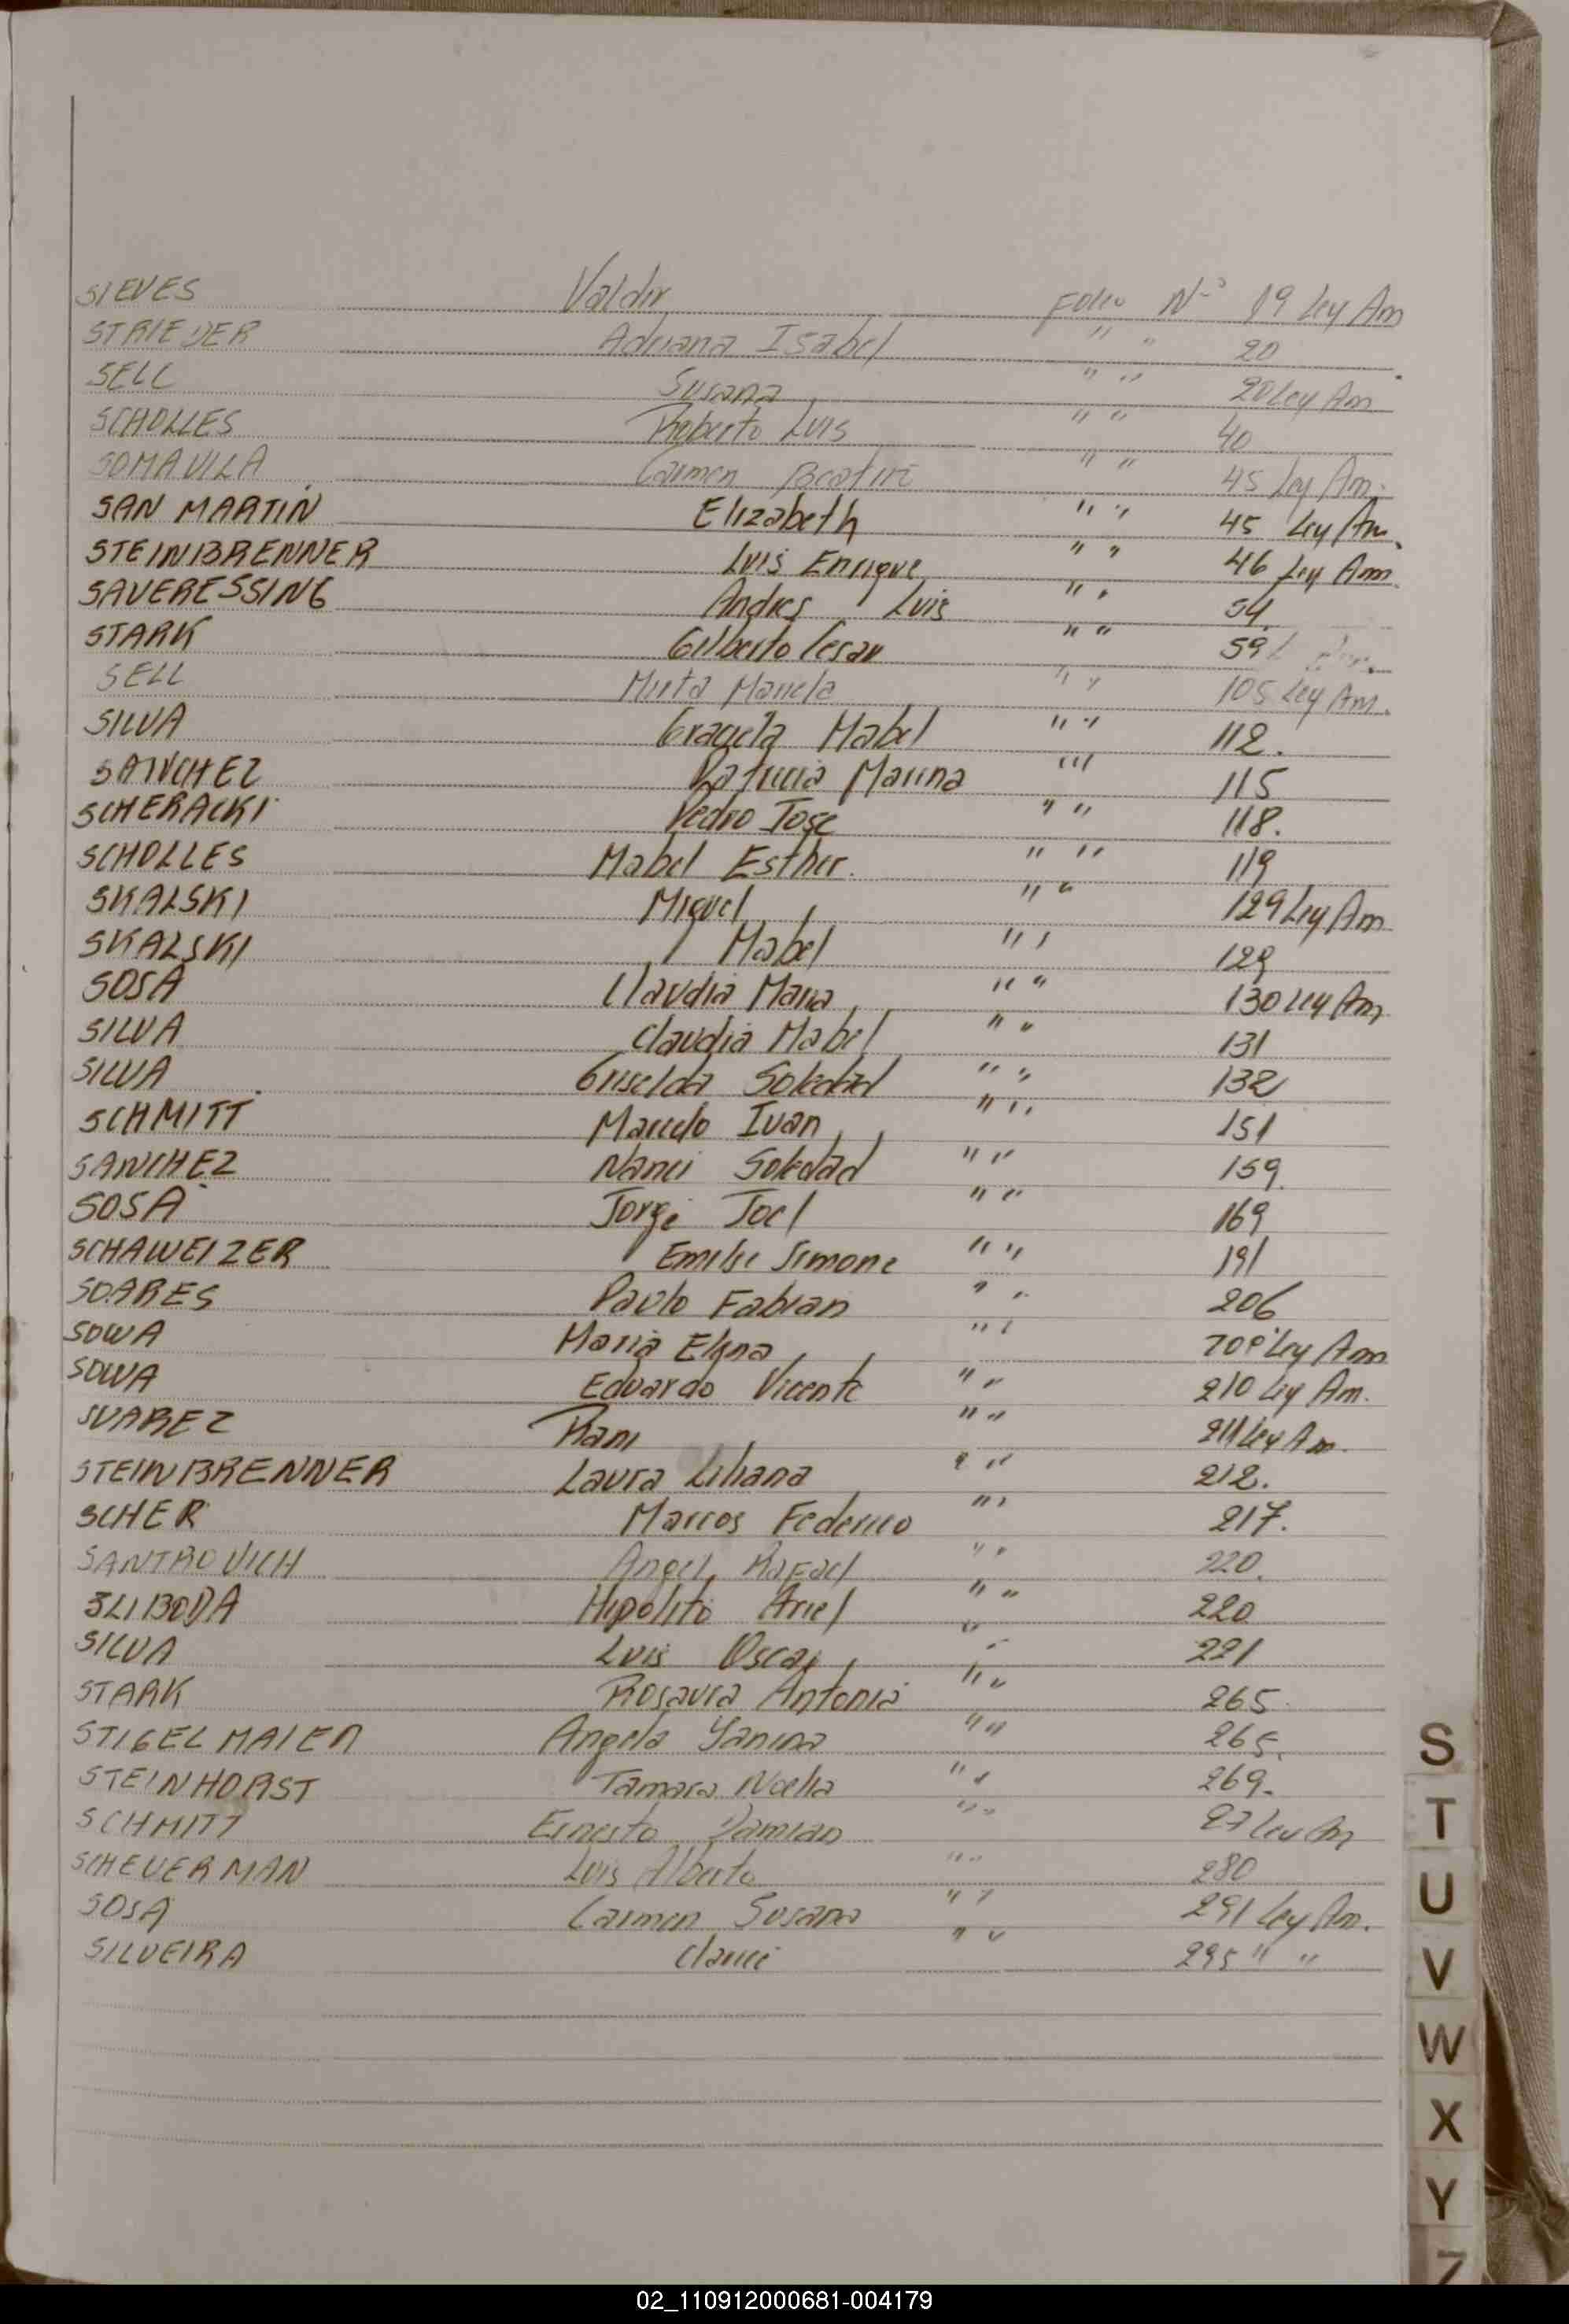 SIEVES Valdir Folio Nº 19 Ley Am
STRIEDER Adriana Isabel " " 20
SELL Susana " " 20 Ley Am
SCHOLLES Roberto Luis " " 40
SOMAVILA Carmen Beatriz " " 45 Ley Am.
SAN MARTIN Elizabeth " " 45 Ley Am.
STEINBRENNER Luis Enrique " " 46 Ley Am.
SAVERESSING Andres Luis " " 54.
STARK Gilberto Cesar " " 59
SELL Mirta Mariela " " 105 Ley Am.
SILVA Graciela Mabel " " 112.
SANCHEZ Patricia Marina " " 115
SCHERACKI Pedro Jose " " 118.
SCHOLLES Mabel Esther. " " 119
SKALSKI Miguel " " 129 Ley Am
SKALSKI Mabel " " 129
SOSA Claudia Maria " " 130 Ley Am
SILVA Claudia Mabel " " 131
SILVA Griselda Soledad " " 132
SCHMITT Marcelo Ivan " " 151
SANCHEZ Nanci Soledad " " 159.
SOSA Jorge Joel " " 169
SCHAWEIZER Emilse Simone " " 191
SOARES Paolo Fabian " " 206
SOWA Maria Elena " " Ley Am
SOWA Eduardo Vicente " " 210 Ley Am.
SUAREZ Rani " " 211 Ley Am.
STEINBRENNER Laura Liliana " " 212.
SCHER Marcos Federico " " 217.
SANTROVICH Angel Rafael " " 220.
SLIBODA Hipolito Ariel " " 220
SILVA Luis Oscar " " 221
STARK Rosaura Antonia " " 265.
STIGELMAIER Angela Yanina " " 265.
STEINHORST Tamara Noelia " " 269.
SCHMITT Ernesto Damian " " 27 Ley Am
SCHEUERMAN Luis Alberto " " 280
SOSA Carmen Susana " " 291 Ley Am.
SILVEIRA Clarice " " 295 " "
S
T
U
V
W
X
Y
Z
02_110912000681-004179